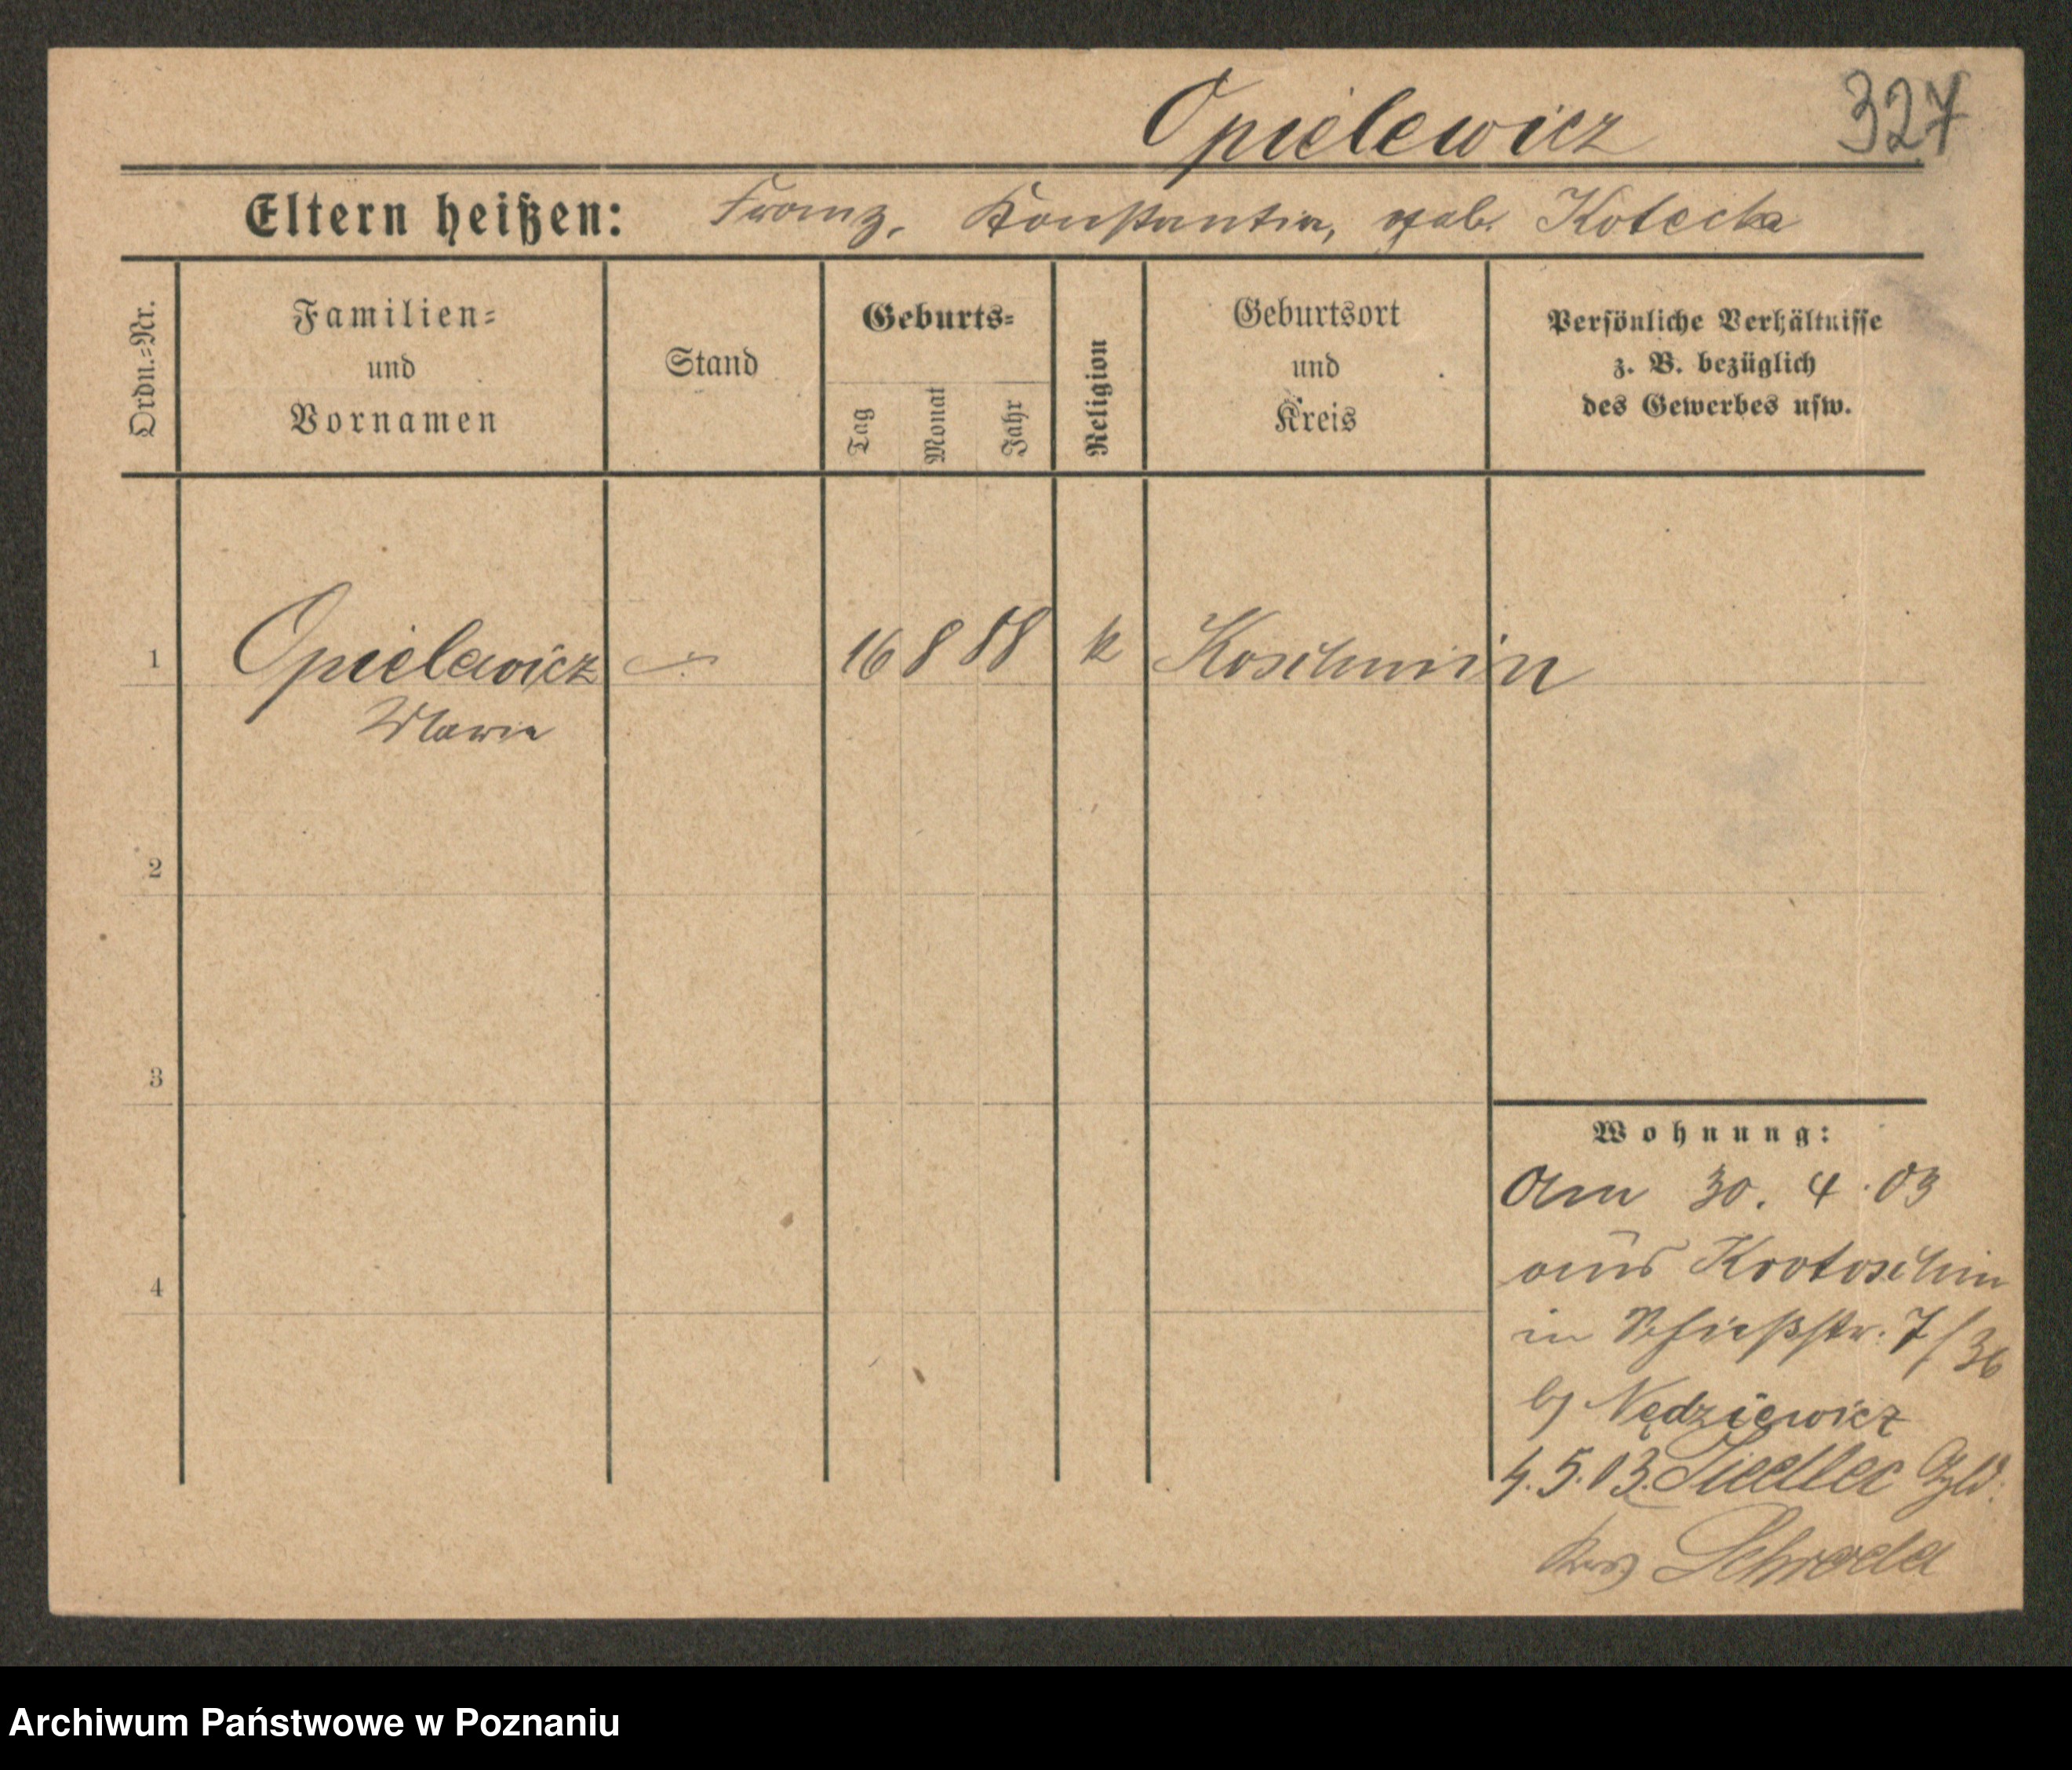 Opielewicz 327
Eltern heißen: Franz, Konstantia, geb. Kotecka
Ordn.=Nr.
Familien=
und
Vornamen
Stand
Geburts=
Tag
Monat
Jahr
Religion
Geburtsort
und
Kreis
Persönliche Verhältnisse
z. B. bezüglich
des Gewerbes usw.
1 Opielewicz 16 8 88 k Koschmin
Maria
2
3
4
Wohnung:
Am 30. 4. 03
aus Krotoschin
in Schießstr. 7/36
bj Nędziewicz
4.5.03. Siedlec
Krs. Schroda
Archiwum Państwowe w Poznaniu